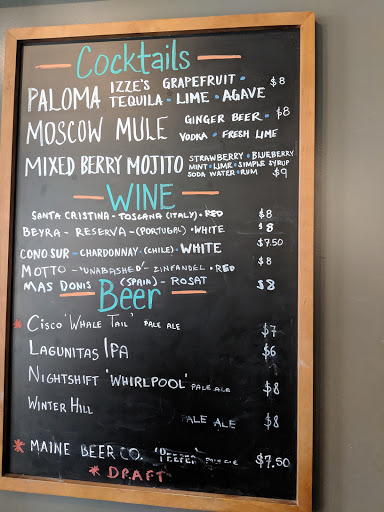 Cocktails
PALOMA IZZE'S GRAPEFRUIT • $8
TEQUILA • LIME • AGAVE
MOSCOW MULE GINGER BEER • $8
VODKA • FRESH LIME
MIXED BERRY MOJITO STRAWBERRY • BLUEBERRY
MINT • LIME • SIMPLE SYRUP
SODA WATER • RUM $9
WINE
SANTA CRISTINA - TOSCANA (ITALY) • RED $8
BEYRA - RESERVA - (PORTUGAL) • WHITE $8
CONO SUR - CHARDONNAY (CHILE) • WHITE $7.50
MOTTO - 'UNABASHED' - ZINFANDEL • RED $8
MAS DONIS (SPAIN) - ROSAT $8
Beer
* CISCO 'WHALE TAIL' PALE ALE $7
LAGUNITAS IPA $6
NIGHTSHIFT 'WHIRLPOOL' PALE ALE $8
WINTER HILL
PALE ALE $8
* MAINE BEER CO. 'PEEPER' $7.50
* DRAFT